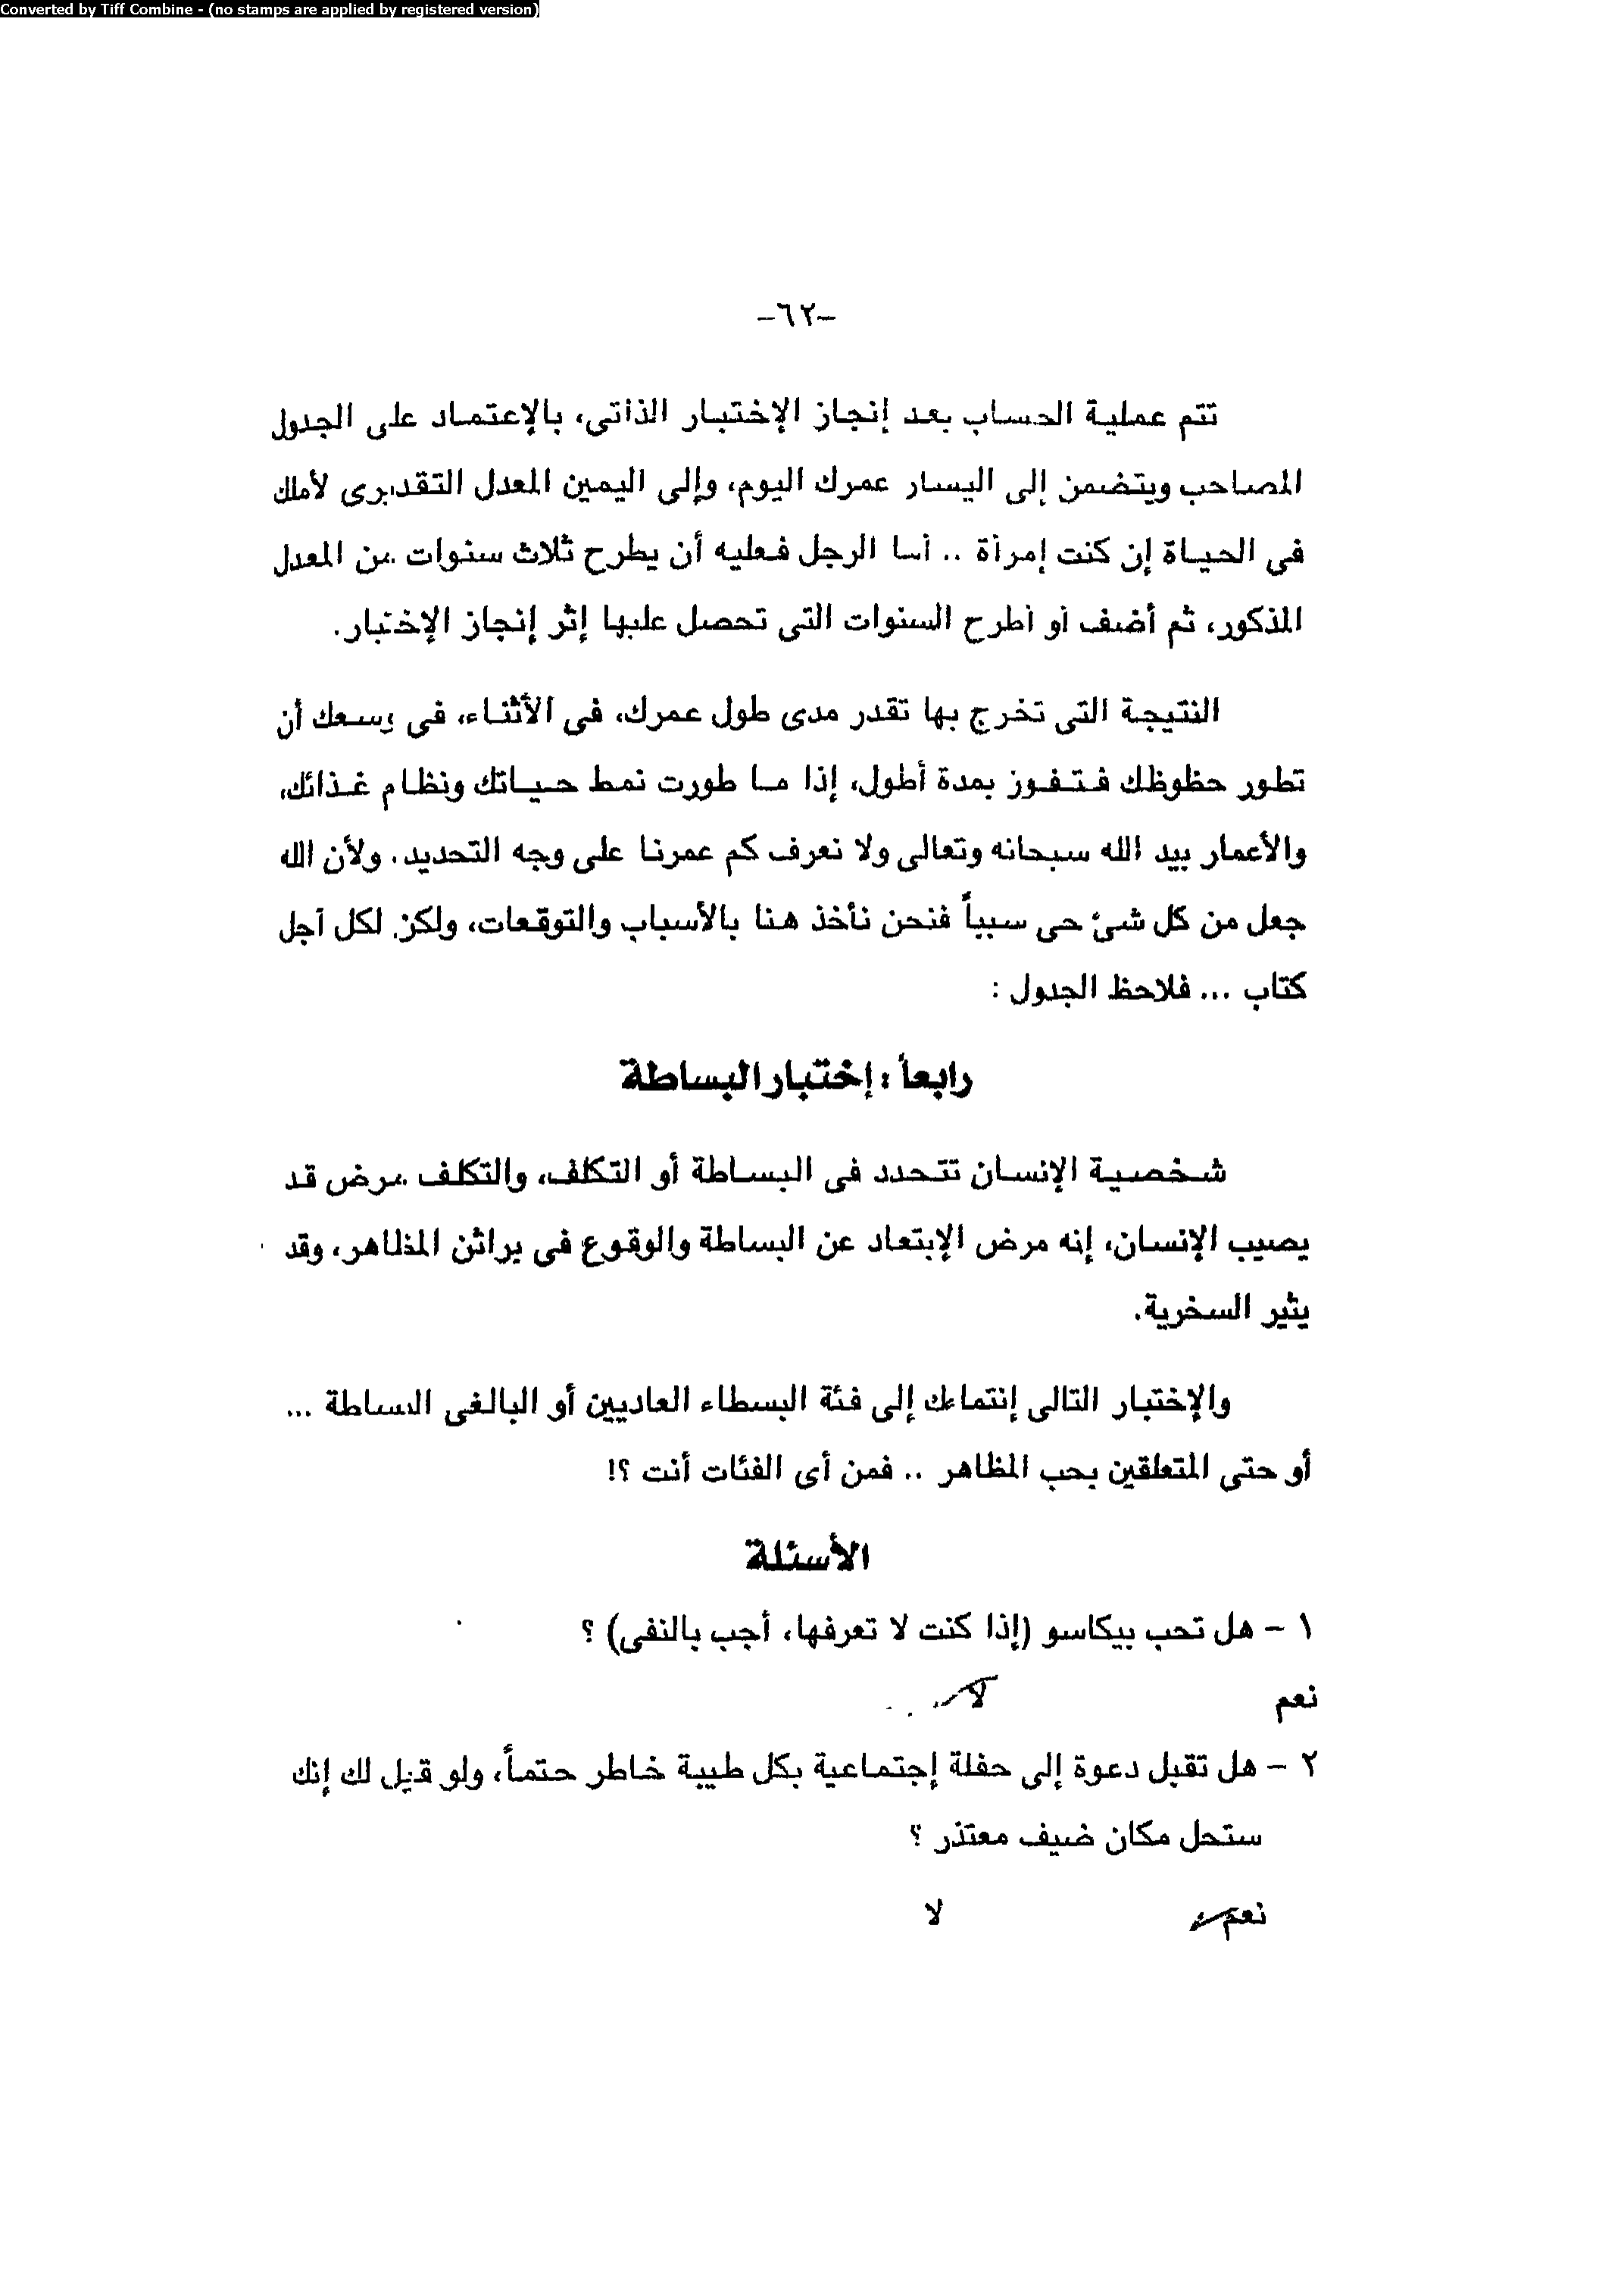 Converted by Tiff Combine - (no stamps are applied by registered version)
-٦٢-
تتم عملية الحساب بعد إنجاز الإختبار الذاتى، بالإعتماد على الجدول
المصاحب ويتضمن إلى اليسار عمرك اليوم، وإلى اليمين المعدل التقديرى لأملك
فى الحياة إن كنت إمرأة .. أما الرجل فعليه أن يطرح ثلاث سنوات من المعدل
المذكور، ثم أضف أو أطرح السنوات التى تحصل عليها إثر إنجاز الإختبار.
النتيجة التى تخرج بها تقدر مدى طول عمرك، فى الأثناء، فى وسعك أن
تطور حظوظك فتفوز بمدة أطول، إذا ما طورت نمط حياتك ونظام غذائك،
والأعمار بيد الله سبحانه وتعالى ولا نعرف كم عمرنا على وجه التحديد. ولأن الله
جعل من كل شئ حى سبباً فنحن نأخذ هنا بالأسباب والتوقعات، ولكن لكل آجل
كتاب ... فلاحظ الجدول :
رابعاً : إختبار البساطة
شخصية الإنسان تتحدد فى البساطة أو التكلف، والتكلف مرض قد
يصيب الإنسان، إنه مرض الإبتعاد عن البساطة والوقوع فى براثن المظاهر، وقد
يثير السخرية.
والإختبار التالى إنتماءك إلى فئة البسطاء العاديين أو البالغى البساطة ...
أو حتى المتعلقين بحب المظاهر .. فمن أى الفئات أنت ؟!
الأسئلة
١ - هل تحب بيكاسو (إذا كنت لا تعرفها، أجب بالنفى) ؟
نعم لا
٢ - هل تقبل دعوة إلى حفلة إجتماعية بكل طيبة خاطر حتماً، ولو قيل لك إنك
ستحل مكان ضيف معتذر ؟
نعم لا